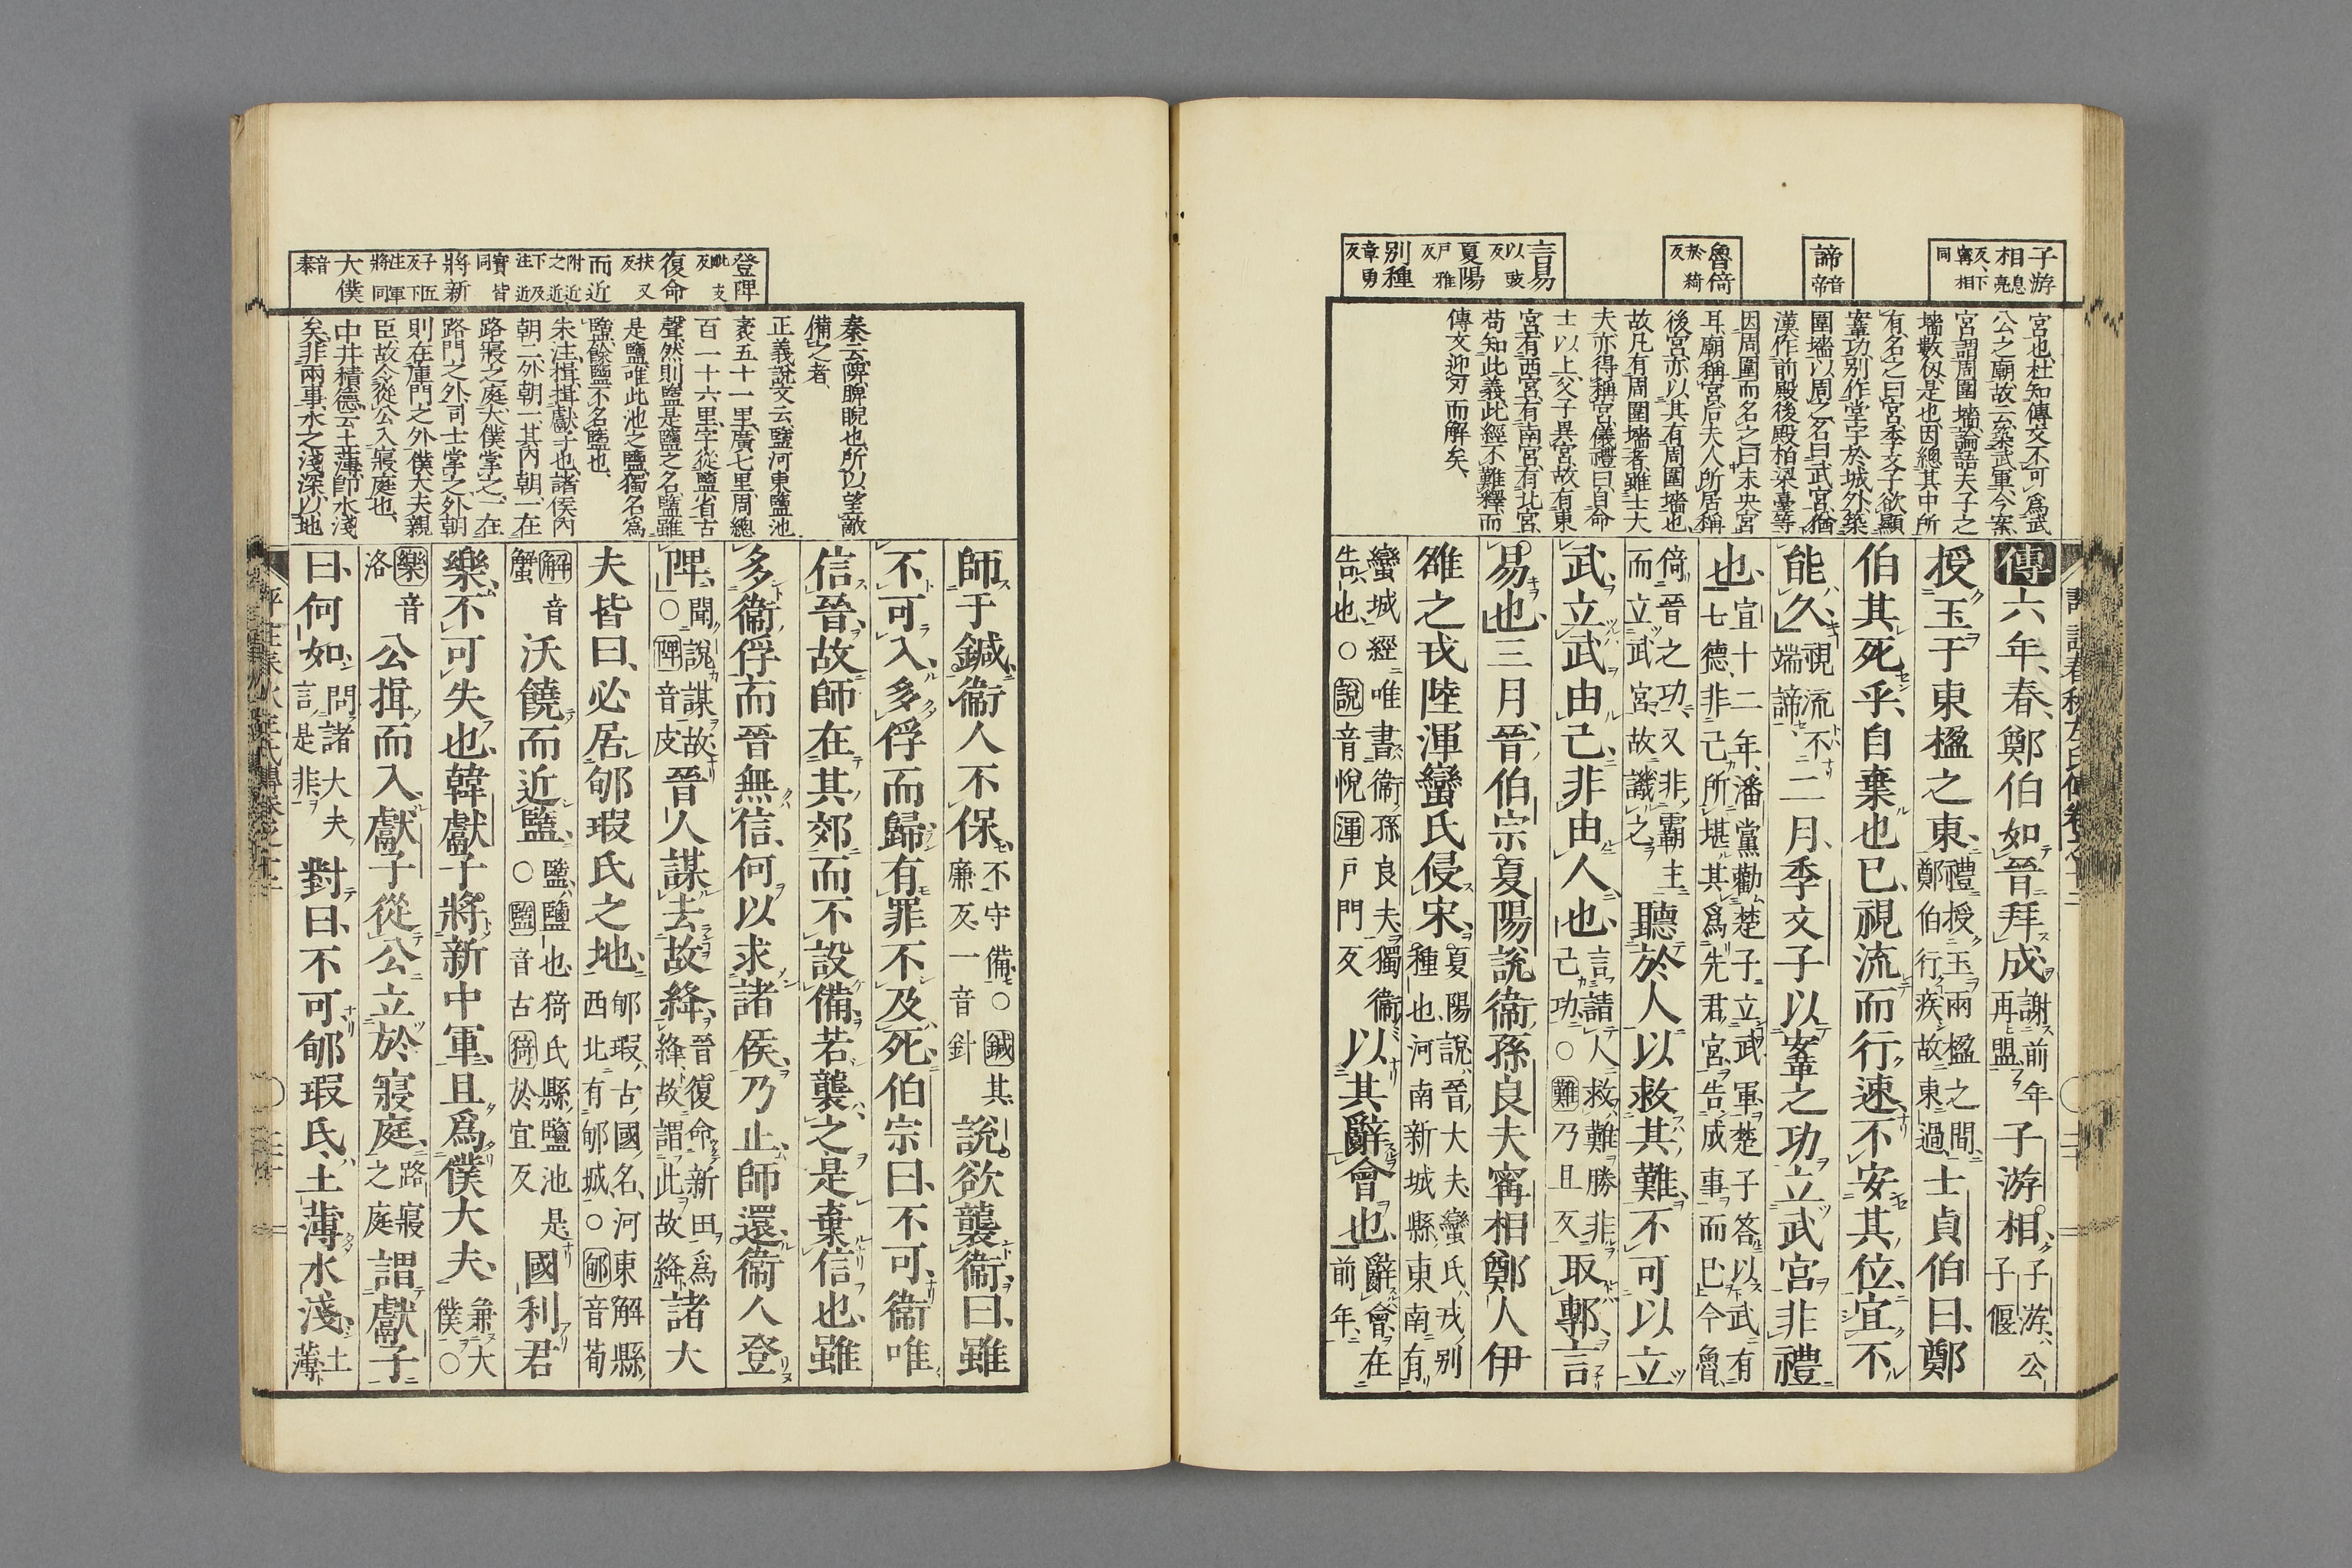 子游
相息亮反、下甯相同
諦音帝
魯倚於綺反
言易以豉反
夏陽戶雅反
別種章勇反
宮也、杜知傳文不可爲武
公之廟、故云築武軍、今案、
宮謂周圍墻、論語夫子之
墻數仭、是也、因總其中所
有、名之曰宮、季文子欲顯
鞌功、別作堂宇於城外、築
圍墻以周之、名曰武宮、猶
漢作前殿後殿柏梁臺等
因周圍而名之曰未央宮
耳、廟稱宮、后夫人所居稱
後宮、亦以其有周圍墻也、
故凡有周圍墻者、雖士大
夫亦得稱宮、儀禮曰、自命
士以上、父子異宮、故有東
宮、有西宮、有南宮、有北宮、
苟知此義、此經不難釋、而
傳文迎刃而解矣、
傳六年、春、鄭伯如晉拜成謝前年再盟子游相、子游、公子偃
授玉于東楹之東、禮、授玉兩楹之間、鄭伯行疾、故東過士貞伯曰、鄭
伯其死乎、自棄也已、視流而行速、不安其位、宜不
能久、視流、不端諦二月、季文子以鞌之功立武宮、非禮
也、宣十二年、潘黨勸楚子立武軍、楚子答以武有七德、非己所堪、其爲先君宮、告成事而已、今魯
倚晉之功、又非霸主、而立武宮、故譏之聽於人以救其難、不可以立
武、立武由己、非由人也、言請人救難、勝非己功○難乃且反取鄟、言
易也、三月、晉伯宗夏陽說衞孫良夫甯相鄭人伊
雒之戎陸渾蠻氏侵宋、夏陽說、晉大夫、蠻氏、戎別種也、河南新城縣東南有
蠻城、經唯書衞孫良夫、獨衞告也、○說音悅渾戶門反以其辭會也、辭會在前年、
登陴毗支反
復命扶又反
而近附近之近下及注近寶皆同
將新子五反下注軍將同
大僕音泰
秦云、陴、睥睨也、所以望敵
備之者、
正義、說文云、鹽河東鹽池
袤五十一里、廣七里、周總
百一十六里、字從鹽省古
聲、然則盬是鹽之名、鹽雖
是鹽、唯此池之鹽、獨名爲
盬、餘鹽不名盬也、
朱注、揖、揖獻子也、諸侯內
朝二外朝一、其內朝一在
路寢之庭、大僕掌之、一在
路門之外、司士掌之、外朝
則在庫門之外、僕大夫親
臣、故令從公入寢庭也、
中井積德云、土薄、卽水淺
矣、非兩事、水之淺深、以地
師于鍼、衞人不保、不守備、○鍼其廉反、一音針說欲襲衞、曰、雖
不可入、多俘而歸、有罪不及死、伯宗曰、不可、衞唯
信晉、故師在其郊、而不設備、若襲之、是棄信也、雖
多衞俘、而晉無信、何以求諸侯、乃止、師還、衞人登
陴、聞說謀故○陴音皮晉人謀去故絳、晉復命新田爲絳、故謂此故絳諸大
夫皆曰、必居郇瑕氏之地、郇瑕、古國名、河東解縣西北有郇城、○郇音荀
解音蟹沃饒而近盬、盬、鹽也、猗氏縣鹽池是、○盬音古猗於宜反國利君
樂、不可失也、韓獻子將新中軍、且爲僕大夫、兼大僕○
樂音洛公揖而入、獻子從、公立於寢庭、路寢之庭謂獻子
曰、何如、問諸大夫言是非對曰、不可、郇瑕氏、土薄水淺、土薄